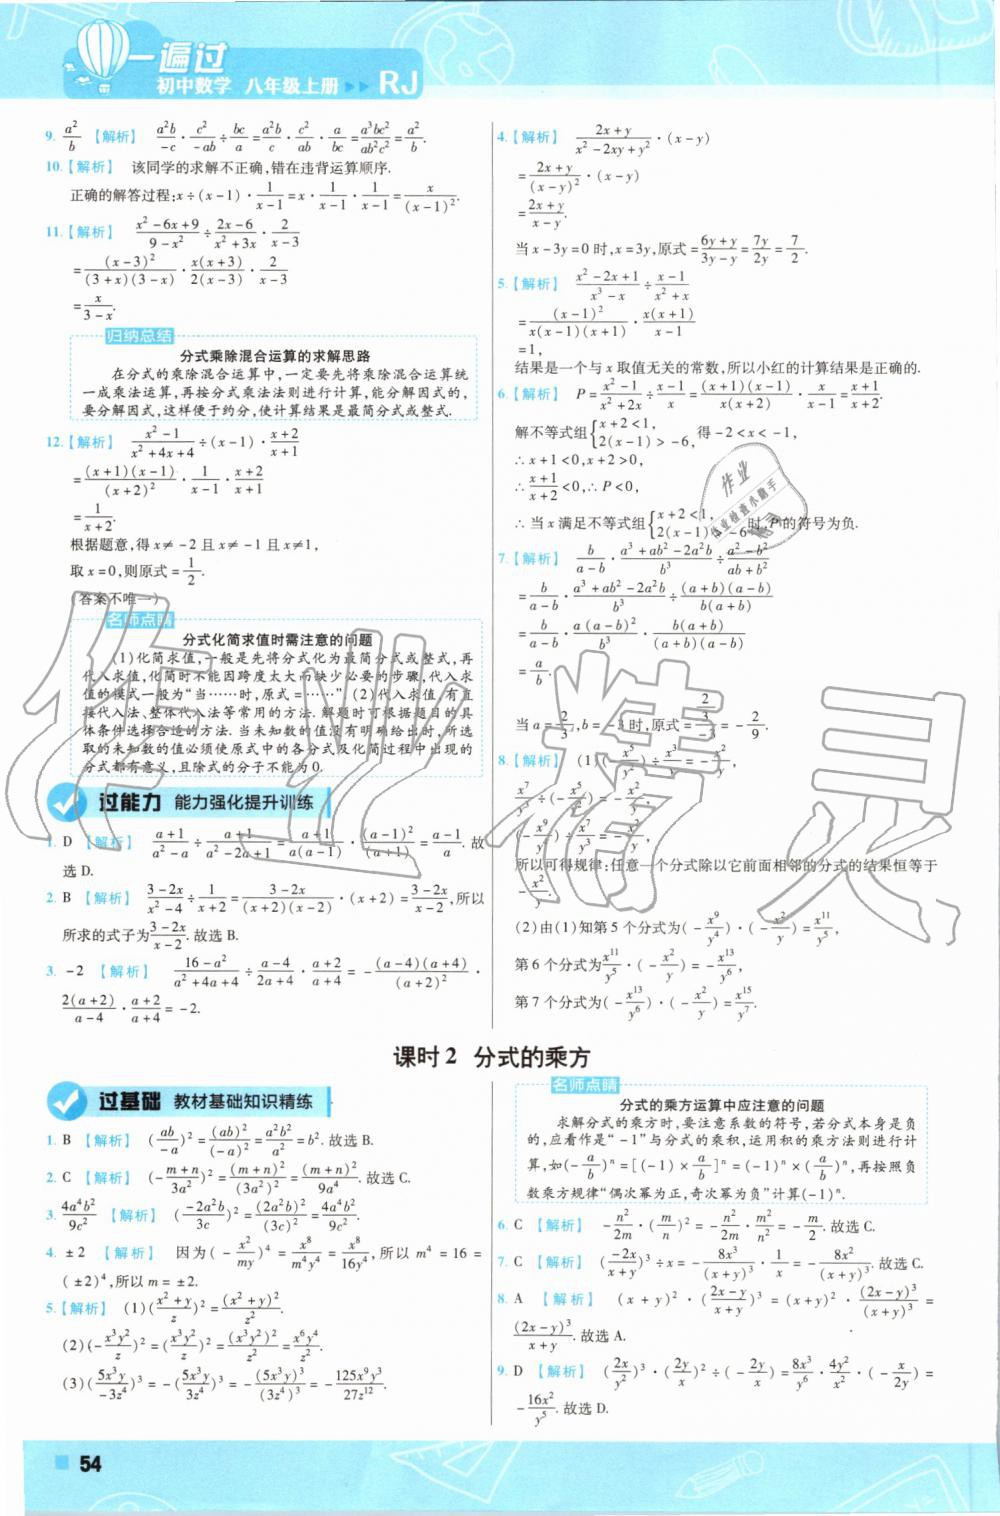 一遍过
初中数学 八年级上册 ▶▶ RJ
9. a²/b 【解析】 a²b/-c · c²/-ab ÷ bc/a = a²b/c · c²/ab · a/bc = a³bc²/ab²c² = a²/b.
10.【解析】 该同学的求解不正确,错在违背运算顺序.
正确的解答过程:x÷(x-1)·1/(x-1)=x·1/(x-1)·1/(x-1)=x/(x-1)².
11.【解析】 (x²-6x+9)/(9-x²)÷(2x-6)/(x²+3x)·2/(x-3)
=(x-3)²/[(3+x)(3-x)]·x(x+3)/[2(x-3)]·2/(x-3)
=x/(3-x).
归纳总结
分式乘除混合运算的求解思路
在分式的乘除混合运算中,一定要先将乘除混合运算统
一成乘法运算,再按分式乘法法则进行计算,能分解因式的,
要分解因式,这样便于约分,使计算结果是最简分式或整式.
12.【解析】 (x²-1)/(x²+4x+4)÷(x-1)·(x+2)/(x+1)
=(x+1)(x-1)/(x+2)²·1/(x-1)·(x+2)/(x+1)
=1/(x+2).
根据题意,得x≠-2且x≠-1且x≠1,
取x=0,则原式=1/2.
(答案不唯一)
名师点睛
分式化简求值时需注意的问题
(1)化简求值,一般是先将分式化为最简分式或整式,再
代入求值,化简时不能因跨度太大而缺少必要的步骤,代入求
值的模式一般为“当……时,原式=……”(2)代入求值,有直
接代入法、整体代入法等常用的方法. 解题时可根据题目的具
体条件选择合适的方法. 当未知数的值没有明确给出时,所选
取的未知数的值必须使原式中的各分式及化简过程中出现的
分式都有意义,且除式的分子不能为0.
过能力 能力强化提升训练
1. D 【解析】 (a+1)/(a²-a)÷(a+1)/(a²-2a+1)=(a+1)/[a(a-1)]·(a-1)²/(a+1)=(a-1)/a. 故
选D.
2. B 【解析】 (3-2x)/(x²-4)÷1/(x+2)=(3-2x)/[(x+2)(x-2)]·(x+2)=(3-2x)/(x-2),所以
所求的式子为(3-2x)/(x-2).故选B.
3. -2 【解析】 (16-a²)/(a²+4a+4)÷(a-4)/(2a+4)·(a+2)/(a+4)=-(a-4)(a+4)/(a+2)²·
2(a+2)/(a-4)·(a+2)/(a+4)=-2.
4.【解析】 (2x+y)/(x²-2xy+y²)·(x-y)
=(2x+y)/(x-y)²·(x-y)
=(2x+y)/(x-y).
当x-3y=0时,x=3y,原式=(6y+y)/(3y-y)=7y/2y=7/2.
5.【解析】 (x²-2x+1)/(x³-x)÷(x-1)/(x²+x)
=(x-1)²/[x(x-1)(x+1)]·x(x+1)/(x-1)
=1,
结果是一个与x取值无关的常数,所以小红的计算结果是正确的.
6.【解析】 P=(x²-1)/(x²+2x)÷(x-1)/x=(x+1)(x-1)/[x(x+2)]·x/(x-1)=(x+1)/(x+2).
解不等式组{x+2<1, 2(x-1)>-6,得-2<x<-1,
∴x+1<0,x+2>0,
∴(x+1)/(x+2)<0,∴P<0,
∴当x满足不等式组{x+2<1, 2(x-1)>-6时,P的符号为负.
7.【解析】 b/(a-b)·(a³+ab²-2a²b)/b³÷(a²-b²)/(ab+b²)
=b/(a-b)·(a³+ab²-2a²b)/b³÷(a+b)(a-b)/[b(a+b)]
=b/(a-b)·a(a-b)²/b³·b(a+b)/[(a+b)(a-b)]
=a/b.
当a=2/3,b=-3时,原式=(2/3)/(-3)=-2/9.
8.【解析】 (1)(-x⁵/y²)÷x³/y=-x²/y,
x⁷/y³÷(-x⁵/y²)=-x²/y,
(-x⁹/y⁴)÷x⁷/y³=-x²/y,
所以可得规律:任意一个分式除以它前面相邻的分式的结果恒等于
-x²/y.
(2)由(1)知第5个分式为(-x⁹/y⁴)·(-x²/y)=x¹¹/y⁵,
第6个分式为x¹¹/y⁵·(-x²/y)=-x¹³/y⁶,
第7个分式为(-x¹³/y⁶)·(-x²/y)=x¹⁵/y⁷.
课时2 分式的乘方
过基础 教材基础知识精练
1. B 【解析】 (ab/-a)²=(ab)²/(-a)²=a²b²/a²=b². 故选B.
2. C 【解析】 (-(m+n)/3a²)²=(m+n)²/(3a²)²=(m+n)²/9a⁴. 故选C.
3. 4a⁴b²/9c² 【解析】 (-2a²b/3c)²=(2a²b)²/(3c)²=4a⁴b²/9c².
4. ±2 【解析】 因为(-x²/my)⁴=x⁸/m⁴y⁴=x⁸/16y⁴,所以m⁴=16=
(±2)⁴,所以m=±2.
5.【解析】 (1)((x²+y)/z)²=(x²+y)²/z².
(2)(-x³y²/z)²=(x³y²/z)²=(x³y²)²/z²=x⁶y⁴/z².
(3)(5x³y/-3z⁴)³=-(5x³y/3z⁴)³=-(5x³y)³/(3z⁴)³=-125x⁹y³/27z¹².
名师点睛
分式的乘方运算中应注意的问题
求解分式的乘方时,要注意系数的符号,若分式本身是负
的,应看作是“-1”与分式的乘积,运用积的乘方法则进行计
算,如(-a/b)ⁿ=[(-1)×a/b]ⁿ=(-1)ⁿ×(a/b)ⁿ,再按照负
数乘方规律“偶次幂为正,奇次幂为负”计算(-1)ⁿ.
6. C 【解析】 -n²/2m·(m/n)²=-n²/2m·m²/n²=-m/2.故选C.
7. C 【解析】 (-2x/(x+y))³÷x=-8x³/(x+y)³·1/x=-8x²/(x+y)³.故选C.
8. A 【解析】 (x+y)²·((2x-y)/(x+y))³=(x+y)²·(2x-y)³/(x+y)³=
(2x-y)³/(x+y).故选A.
9. D 【解析】 (2x/y²)³·(2y/x)²÷(-2y/x)=8x³/y⁶·4y²/x²·(-x/2y)=
-16x²/y⁵.故选D.
54
作业
作业检查小助手
作业精灵